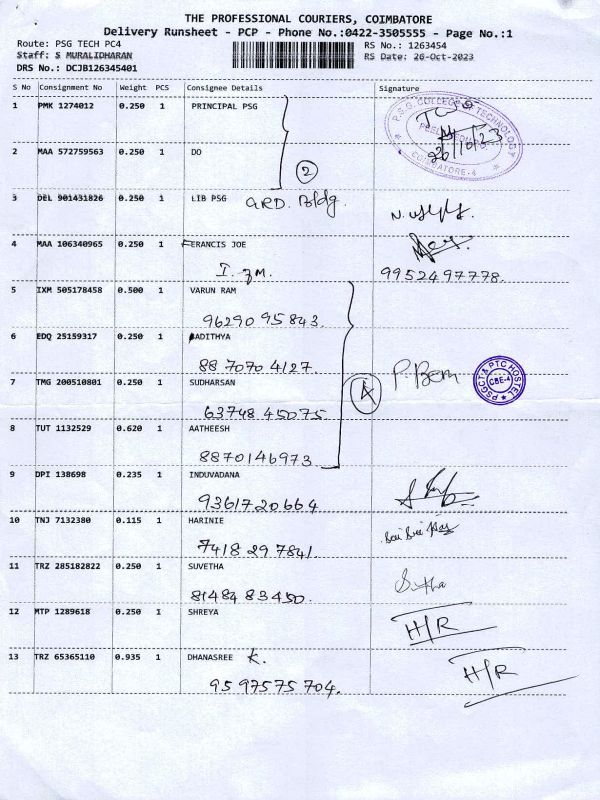 THE PROFESSIONAL COURIERS, COIMBATORE
Delivery Runsheet - PCP - Phone No.:0422-3505555 - Page No.:1
Route: PSG TECH PC4 RS No.: 1263454
Staff: S MURALIDHARAN RS Date: 26-Oct-2023
DRS No.: DCJB126345401
S No Consignment No Weight PCS Consignee Details Signature
1 PMK 1274012 0.250 1 PRINCIPAL PSG
P.S.G. COLLEGE OF TECHNOLOGY
COIMBATORE-4
26/10/23
2 MAA 572759563 0.250 1 DO
2
3 DEL 901431826 0.250 1 LIB PSG GRD. Bldg.
4 MAA 106340965 0.250 1 FERANCIS JOE
9952497778.
5 IXM 505178458 0.500 1 VARUN RAM
96290 95843.
6 EDQ 25159317 0.250 1 AADITHYA
88 7070 4127.
7 TMG 200510801 0.250 1 SUDHARSAN
4
PSGCT & PTC HOSTEL
CBE-4
63748 45075
8 TUT 1132529 0.620 1 AATHEESH
8870146973
9 DPI 138698 0.235 1 INDUVADANA
9361720664
10 TNJ 7132380 0.115 1 HARINIE
7418 29 7841.
11 TRZ 285182822 0.250 1 SUVETHA
81484 83450.
12 MTP 1289618 0.250 1 SHREYA
H/R
13 TRZ 65365110 0.935 1 DHANASREE K.
H/R
9597575704.